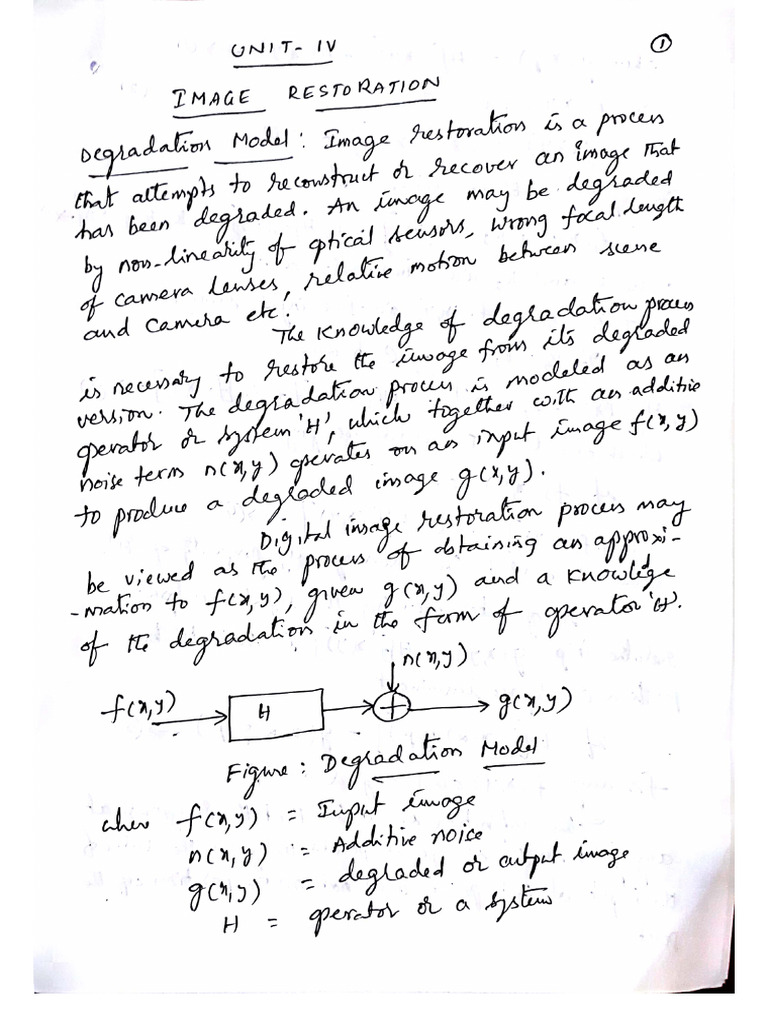 UNIT- IV
1
IMAGE RESTORATION
Degradation Model: Image restoration is a process
that attempts to reconstruct or recover an image that
has been degraded. An image may be degraded
by non-linearity of optical sensors, wrong focal length
of camera lenses, relative motion between scene
and camera etc.
The knowledge of degradation process
is necessary to restore the image from its degraded
version. The degradation process is modeled as an
operator or system 'H', which together with an additive
noise term n(x,y) operates on an input image f(x,y)
to produce a degraded image g(x,y).
Digital image restoration process may
be viewed as the process of obtaining an approxi-
-mation to f(x,y), given g(x,y) and a knowledge
of the degradation in the form of operator 'H'.
n(x,y)
f(x,y) H + g(x,y)
Figure: Degradation Model
where f(x,y) = Input image
n(x,y) = Additive noise
g(x,y) = degraded or output image
H = operator or a system